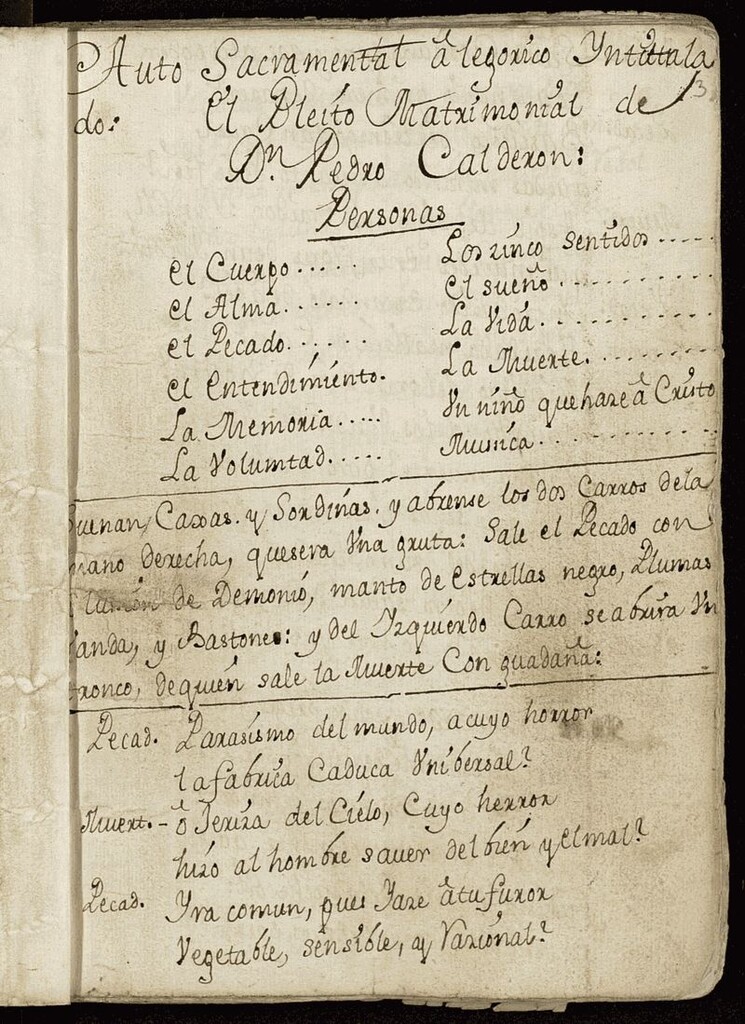 Auto Sacramental âlegorico Yntitula
do: El Pleito Matrimonial de
Dn Pedro Calderon:
3
Personas
el Cuerpo.....
el Alma......
el Pecado......
el Entendimiento.
La Memoria.....
La Volumtad.....
Los zinco sentidos.....
el sueño..........
La Vida..........
La Muerte..........
Vn niño que haze â Cristo
Musica..........
Suenan Caxas. y Sordinas. y abrense los dos Carros dela
mano derecha, quesera Vna gruta: Sale el Pecado con
de Demonio, manto de estrellas negro, Plumas
Vanda, y Bastone: y del Yzquierdo Carro se abrira Vn
tronco, dequien sale la Muerte Con guadaña:
Pecad. Parasismo del mundo, acuyo horror
la fabrica Caduca Vnibersal?
Muert.- ô Jeriza del Cielo, Cuyo herror
hizo al hombre saver del bien y el mal?
Pecad. Yra comun, pues Yaze âtu furor
Vegetable, sensible, y Razional?